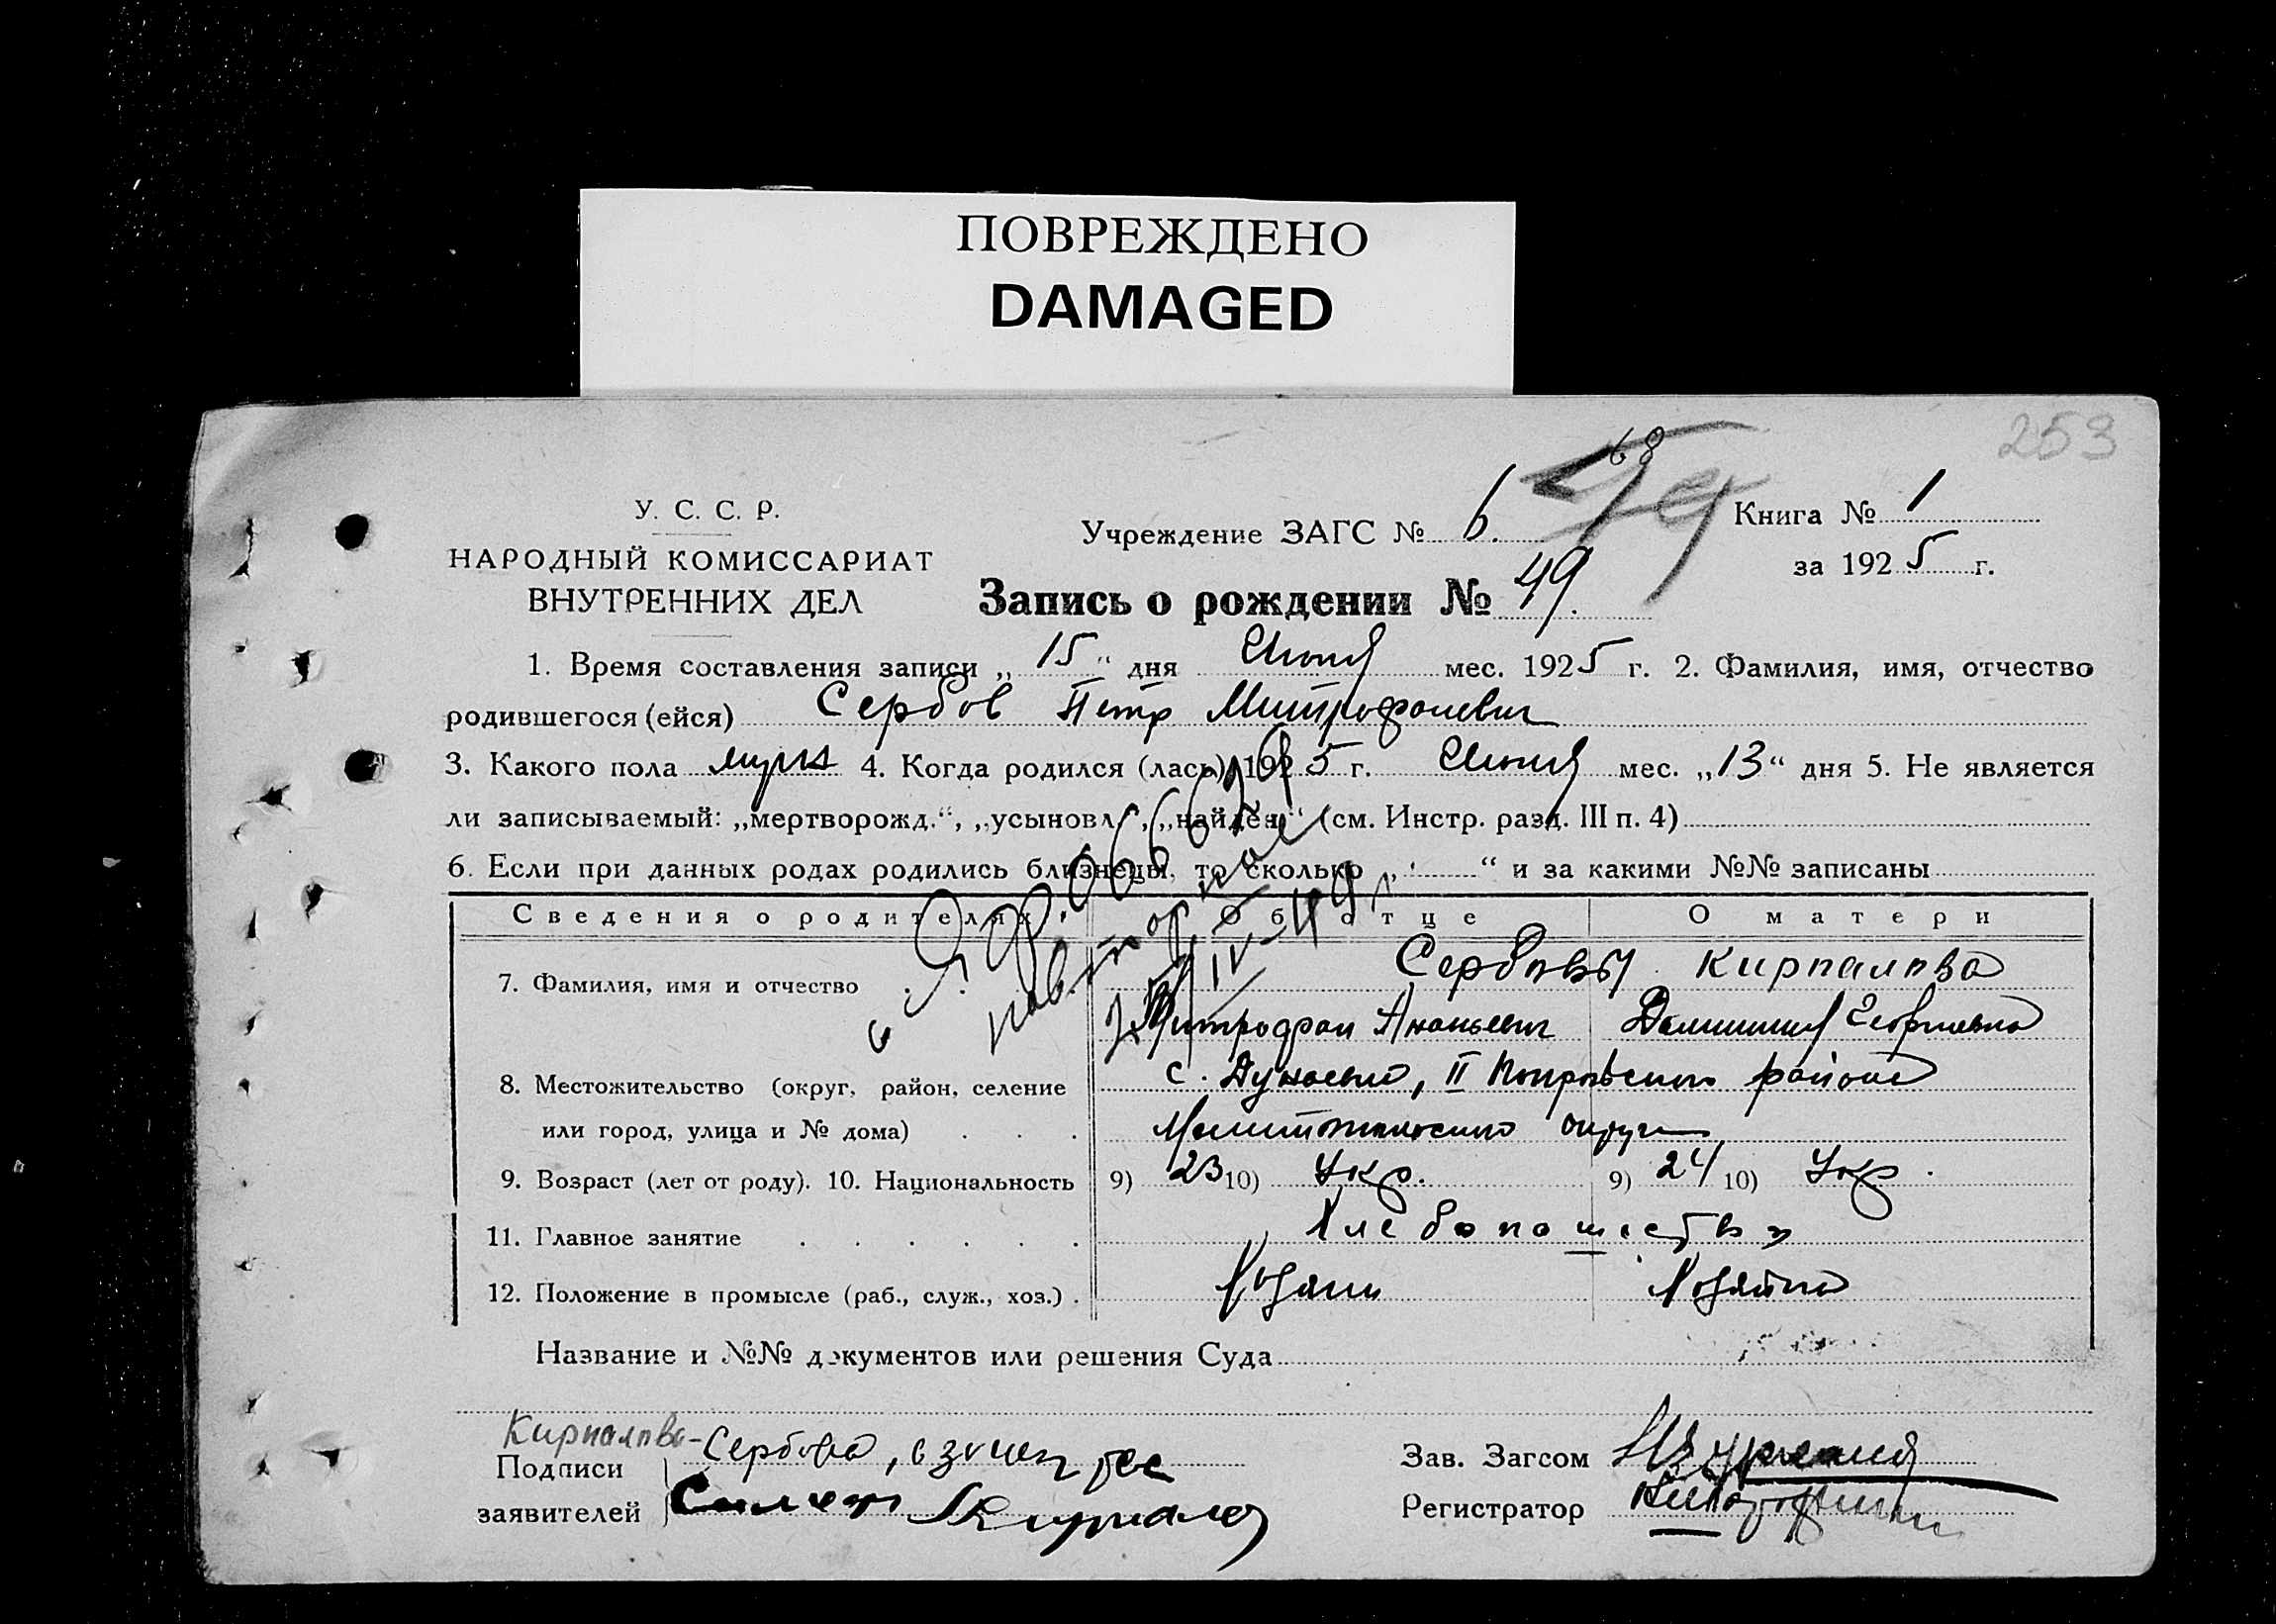 ПОВРЕЖДЕНО
DAMAGED
253
68
У. С. С. Р.
НАРОДНЫЙ КОМИССАРИАТ
ВНУТРЕННИХ ДЕЛ
Учреждение ЗАГС № 6.
Книга № 1
за 1925 г.
Запись о рождении № 49.
1. Время составления записи „15“ дня Июня мес. 1925 г. 2. Фамилия, имя, отчество
родившегося (ейся) Сербов Петр Митрофаневич
3. Какого пола мужс 4. Когда родился (лась) 1925 г. Июня мес. „13“ дня 5. Не является
ли записываемый: „мертворожд.“, „усыновл.“, „найден“ (см. Инстр. разд. III п. 4)
6. Если при данных родах родились близнецы, то сколько „ “ и за какими №№ записаны
Сведения о родителях
Об отце
О матери
повторное
7. Фамилия, имя и отчество
Сербовы Кирпалова
Митрофан Ананьевич
Георгиевна
8. Местожительство (округ, район, селение
с. Дунаевка, II Покровского района
или город, улица и № дома)
Мелитопольского округа
9. Возраст (лет от роду). 10. Национальность 9) 23 10) Укр. 9) 24 10) Укр.
11. Главное занятие
Хлебопашество
12. Положение в промысле (раб., служ., хоз.)
Хозяин Хозяйка
Название и №№ документов или решения Суда
Кирпалова-Сербова,
Подписи
заявителей
Зав. Загсом
Регистратор